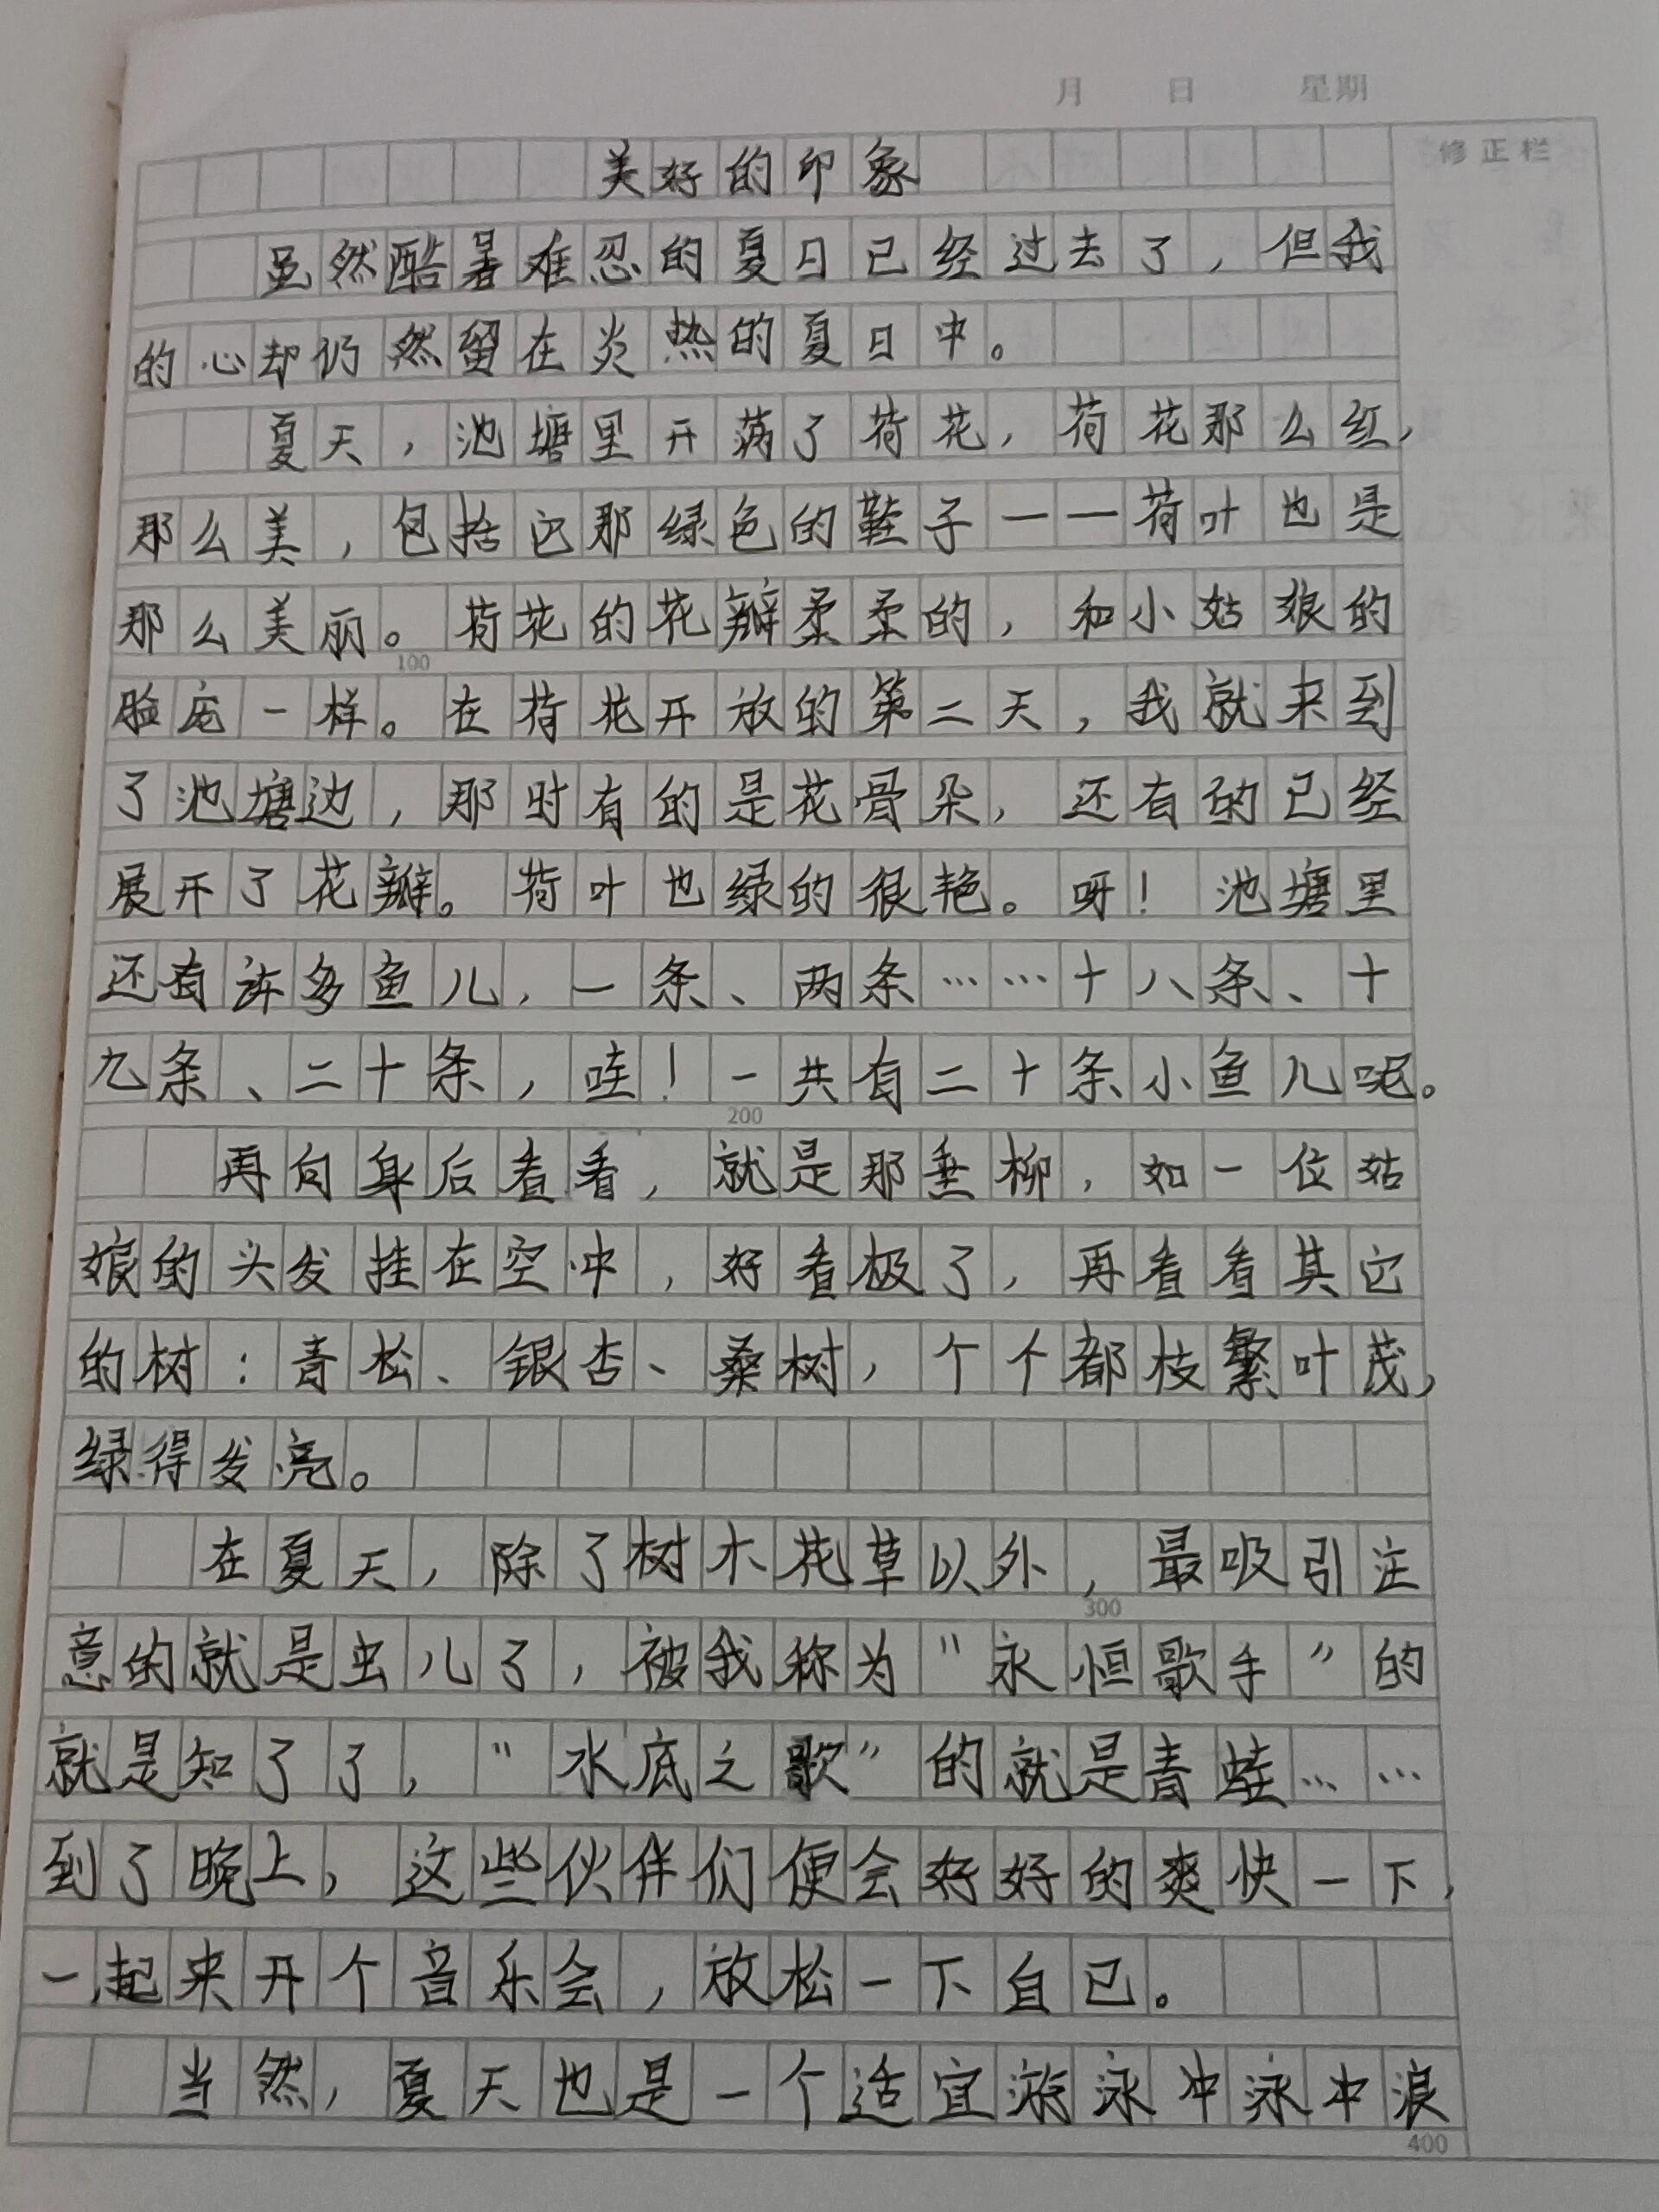 月 日 星期
修正栏
美好的印象
虽然酷暑难忍的夏日已经过去了，但我
的心却仍然留在炎热的夏日中。
夏天，池塘里开满了荷花，荷花那么红，
那么美，包括它那绿色的鞋子——荷叶也是
那么美丽。荷花的花瓣柔柔的，和小姑娘的
100
脸庞一样。在荷花开放的第二天，我就来到
了池塘边，那时有的是花骨朵，还有的已经
展开了花瓣。荷叶也绿的很艳。呀！池塘里
还有许多鱼儿，一条、两条……十八条、十
九条、二十条，哇！一共有二十条小鱼儿呢。
200
再向身后看看，就是那垂柳，如一位姑
娘的头发挂在空中，好看极了，再看看其它
的树：青松、银杏、桑树，个个都枝繁叶茂，
绿得发亮。
在夏天，除了树木花草以外，最吸引注
300
意的就是虫儿了，被我称为“永恒歌手”的
就是知了了，“水底之歌”的就是青蛙……
到了晚上，这些伙伴们便会好好的爽快一下，
一起来开个音乐会，放松一下自己。
当然，夏天也是一个适宜游泳冲泳冲浪
400